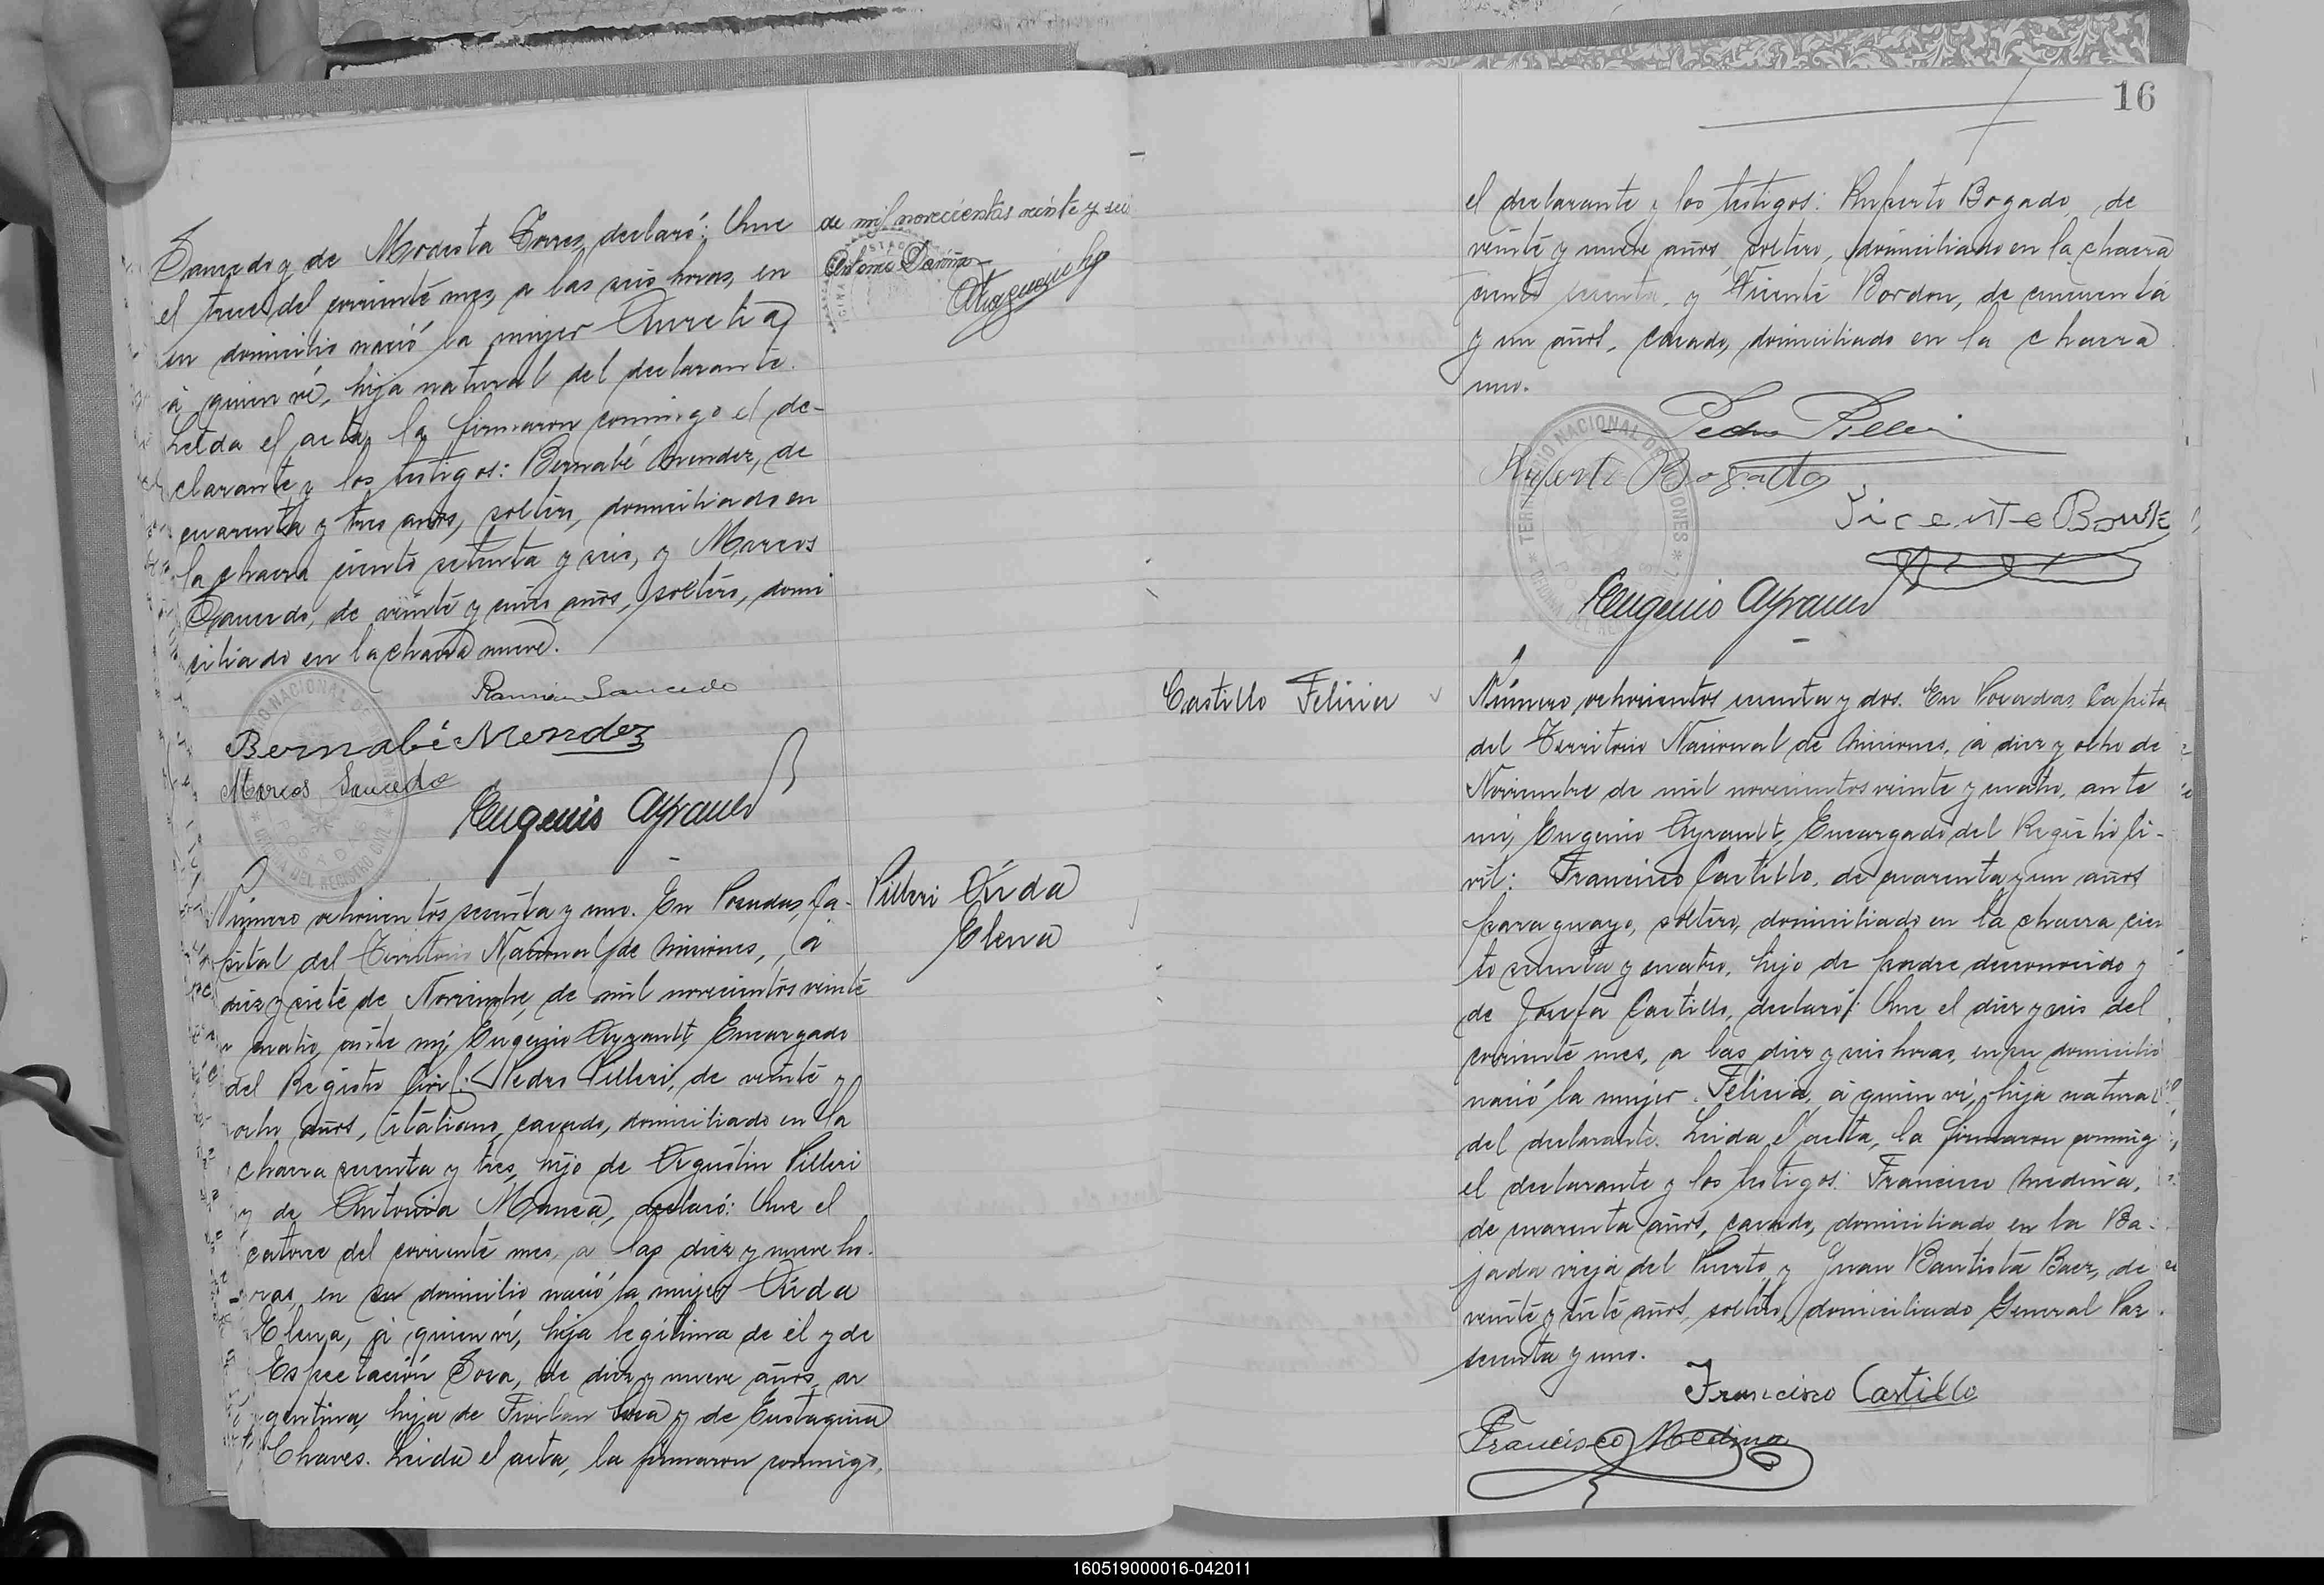 Saucedo y de Modesta Torres, declaró: Que
el trece del corriente mes, a las seis horas, en
su domicilio nació la mujer Aurelia,
á quien ví, hija natural del declarante.
Leída el acta, la firmaron conmigo el de-
clarante y los testigos: Bernabé Mendez, de
cuarenta y tres años, soltero, domiciliado en
la chacra ciento setenta y seis, y Marcos
Saucedo, de veinte y años, soltero, domi
ciliado en la chacra nueve.
Ramón Saucedo
Bernabé Mendez
Marcos Saucedo
Eugenio Ayrault
de mil novecientos veinte y seis
Número ochocientos sesenta y uno. En Posadas, Ca-
pital del Territorio Nacional de Misiones, á
diez y siete de Noviembre, de mil novecientos veinte
y cuatro, ante mí, Eugenio Ayrault, Encargado
del Registro Civil: Pedro Pilleri, de veinte y
ocho años, italiano, casado, domiciliado en la
chacra sesenta y tres, hijo de Agustín Pilleri
y de Antonia Manca, declaró: Que el
catorce del corriente mes, a las diez y nueve ho-
ras, en su domicilio nació la mujer Aída
Elena, á quien ví, hija legítima de él y de
Espectación Sosa, de diez y nueve años, ar
gentina, hija de Froilan Sosa y de Eustaquia
Chaves. Leída el acta, la firmaron conmigo,
Pilleri Aída
Elena
16
el declarante y los testigos: Ruperto Bogado, de
veinte y nueve años, soltero, domiciliado en la chacra
ciento sesenta, y Vicente Bordon, de cincuenta
y un años, casado, domiciliado en la chacra
uno.
TERRITORIO NACIONAL DE MISIONES
Pedro Pilleri
Ruperto Bogado
Vicente
Eugenio Ayrault
Castillo Felicia
Número ochocientos sesenta y dos. En Posadas, Capital
del Territorio Nacional de Misiones, á diez y ocho de
Noviembre de mil novecientos veinte y cuatro, ante
mí, Eugenio Ayrault, Encargado del Registro Ci-
vil: Francisco Castillo, de cuarenta y un años
paraguayo, soltero, domiciliado en la chacra cien
to sesenta y cuatro, hijo de padre desconocido y
de Josefa Castillo, declaró: Que el diez y seis del
corriente mes, a las diez y seis horas, en su domicilio
nació la mujer Felicia, á quien ví, hija natural
del declarante. Leída el acta, la firmaron conmig
el declarante y los testigos: Francisco Medina,
de cuarenta años, casado, domiciliado en la Ba-
jada vieja del Puerto, y Juan Bautista Baez, de
veinte y siete años, soltero, domiciliado General Paz
sesenta y uno.
Francisco Castillo
Francisco Medina
160519000016-042011